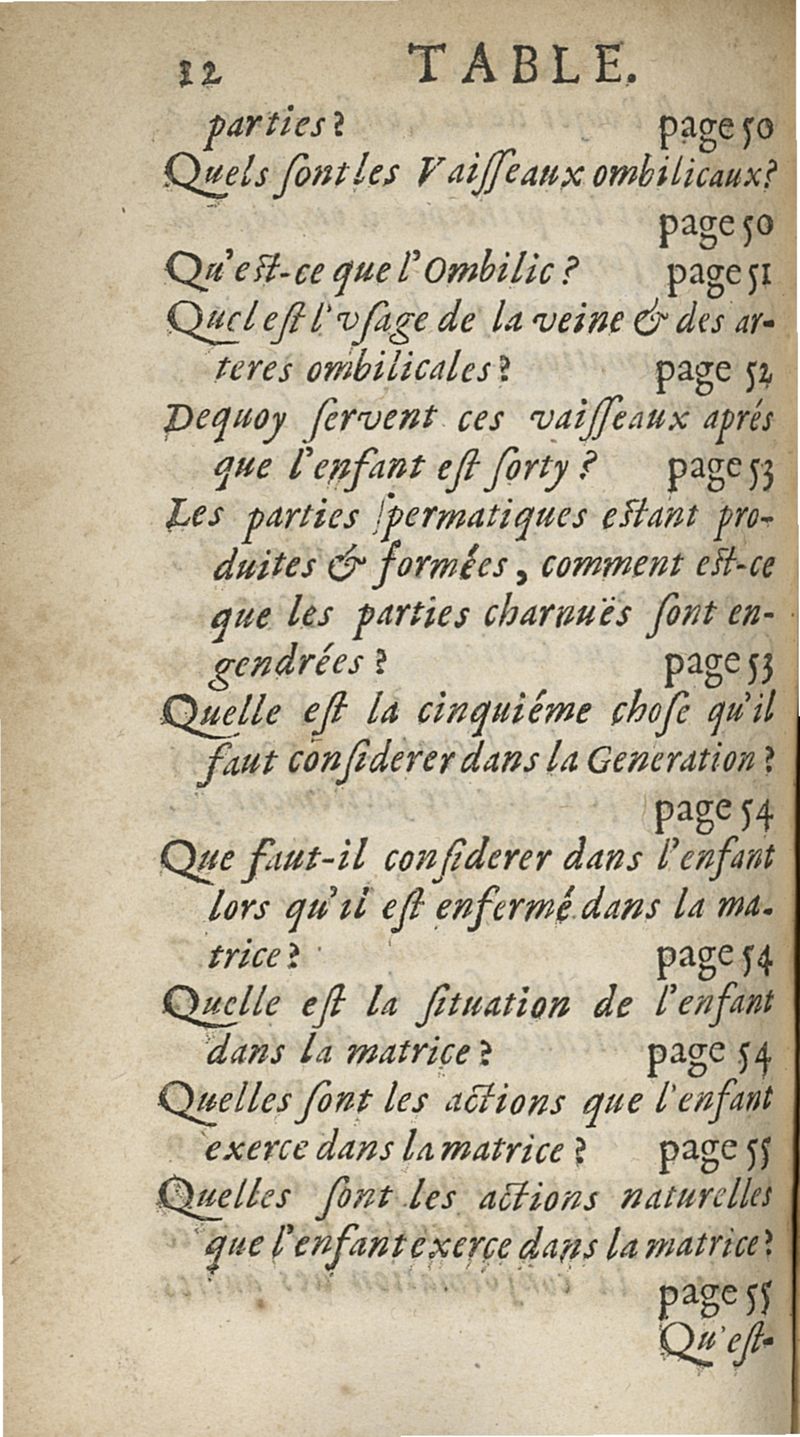 12 TABLE.
parties? page 50
Quels ſont les Vaiſſeaux ombilicaux?
page 50
Qu'eſt-ce que l'Ombilic? page 51
Quel eſt l'vſage de la veine & des ar-
teres ombilicales? page 52
Dequoy ſervent ces vaiſſeaux aprés
que l'enfant eſt ſorty? page 53
Les parties ſpermatiques eſtant pro-
duites & formées, comment eſt-ce
que les parties charnuës ſont en-
gendrées? page 53
Quelle eſt la cinquiéme choſe qu'il
faut conſiderer dans la Generation?
page 54
Que faut-il conſiderer dans l'enfant
lors qu'il eſt enfermé dans la ma-
trice? page 54
Quelle eſt la ſituation de l'enfant
dans la matrice? page 54
Quelles ſont les actions que l'enfant
exerce dans la matrice? page 55
Quelles ſont les actions naturelles
que l'enfant exerce dans la matrice?
page 55
Qu'eſt-